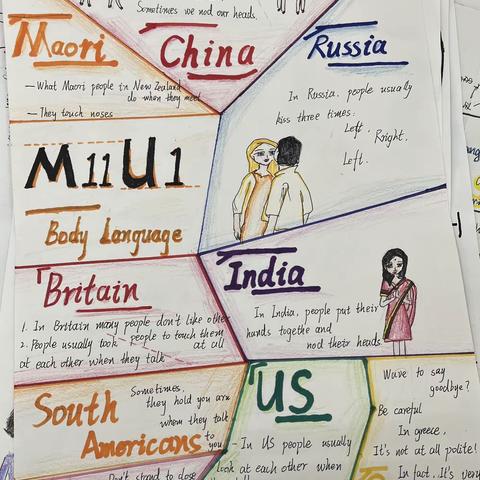 Sometimes we nod our heads.
Maori
— What Maori people in New Zealand
do when they meet
— They touch noses
China
Russia
In Russia, people usually
kiss three times:
Left, Rright,
Left.
M11U1
Body Language
Britain
1. In Britain many people don't like other
2. People usually took people to touch them
at all
at each other when they talk
India
In India, people put their
hands togethe and
nod their heads
South
Americans
Sometimes,
they hold you arm
when they talk
to you
Don't strand to close
US
- In US people usually
look at each other when
Wave to say
goodbye?
Be careful
In greece,
It's not at all polite!
To
In fact. It's very